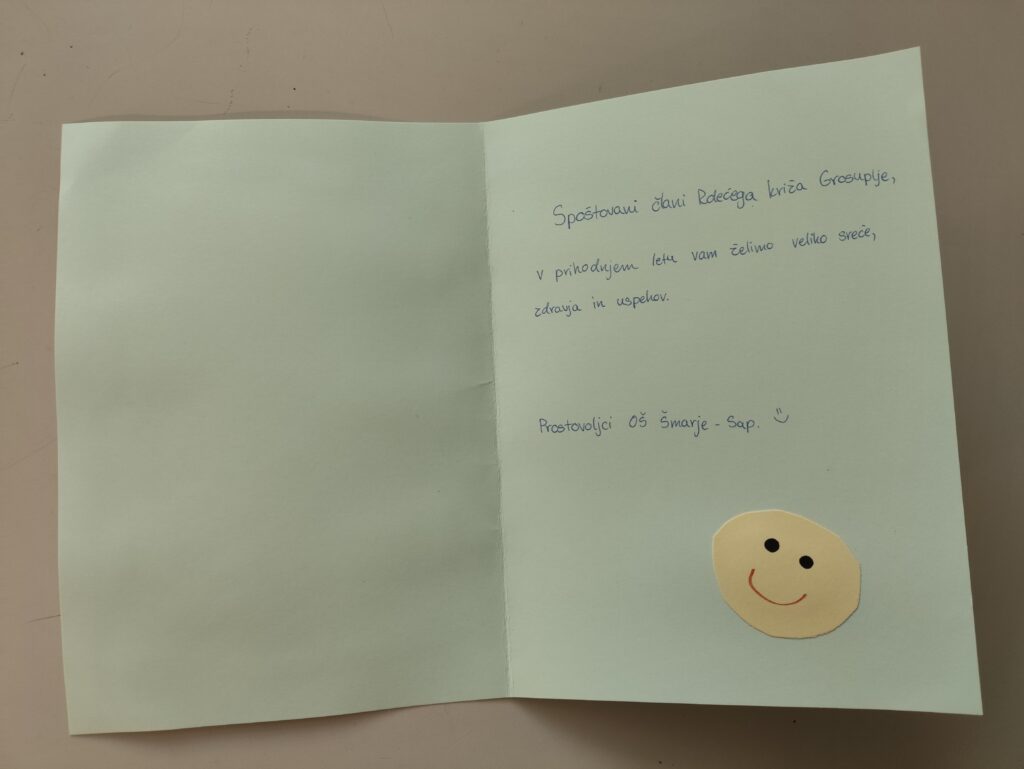 Spoštovani člani Rdečega križa Grosuplje,
v prihodnjem letu vam želimo veliko sreče,
zdravja in uspehov.
Prostovoljci OŠ Šmarje - Sap.